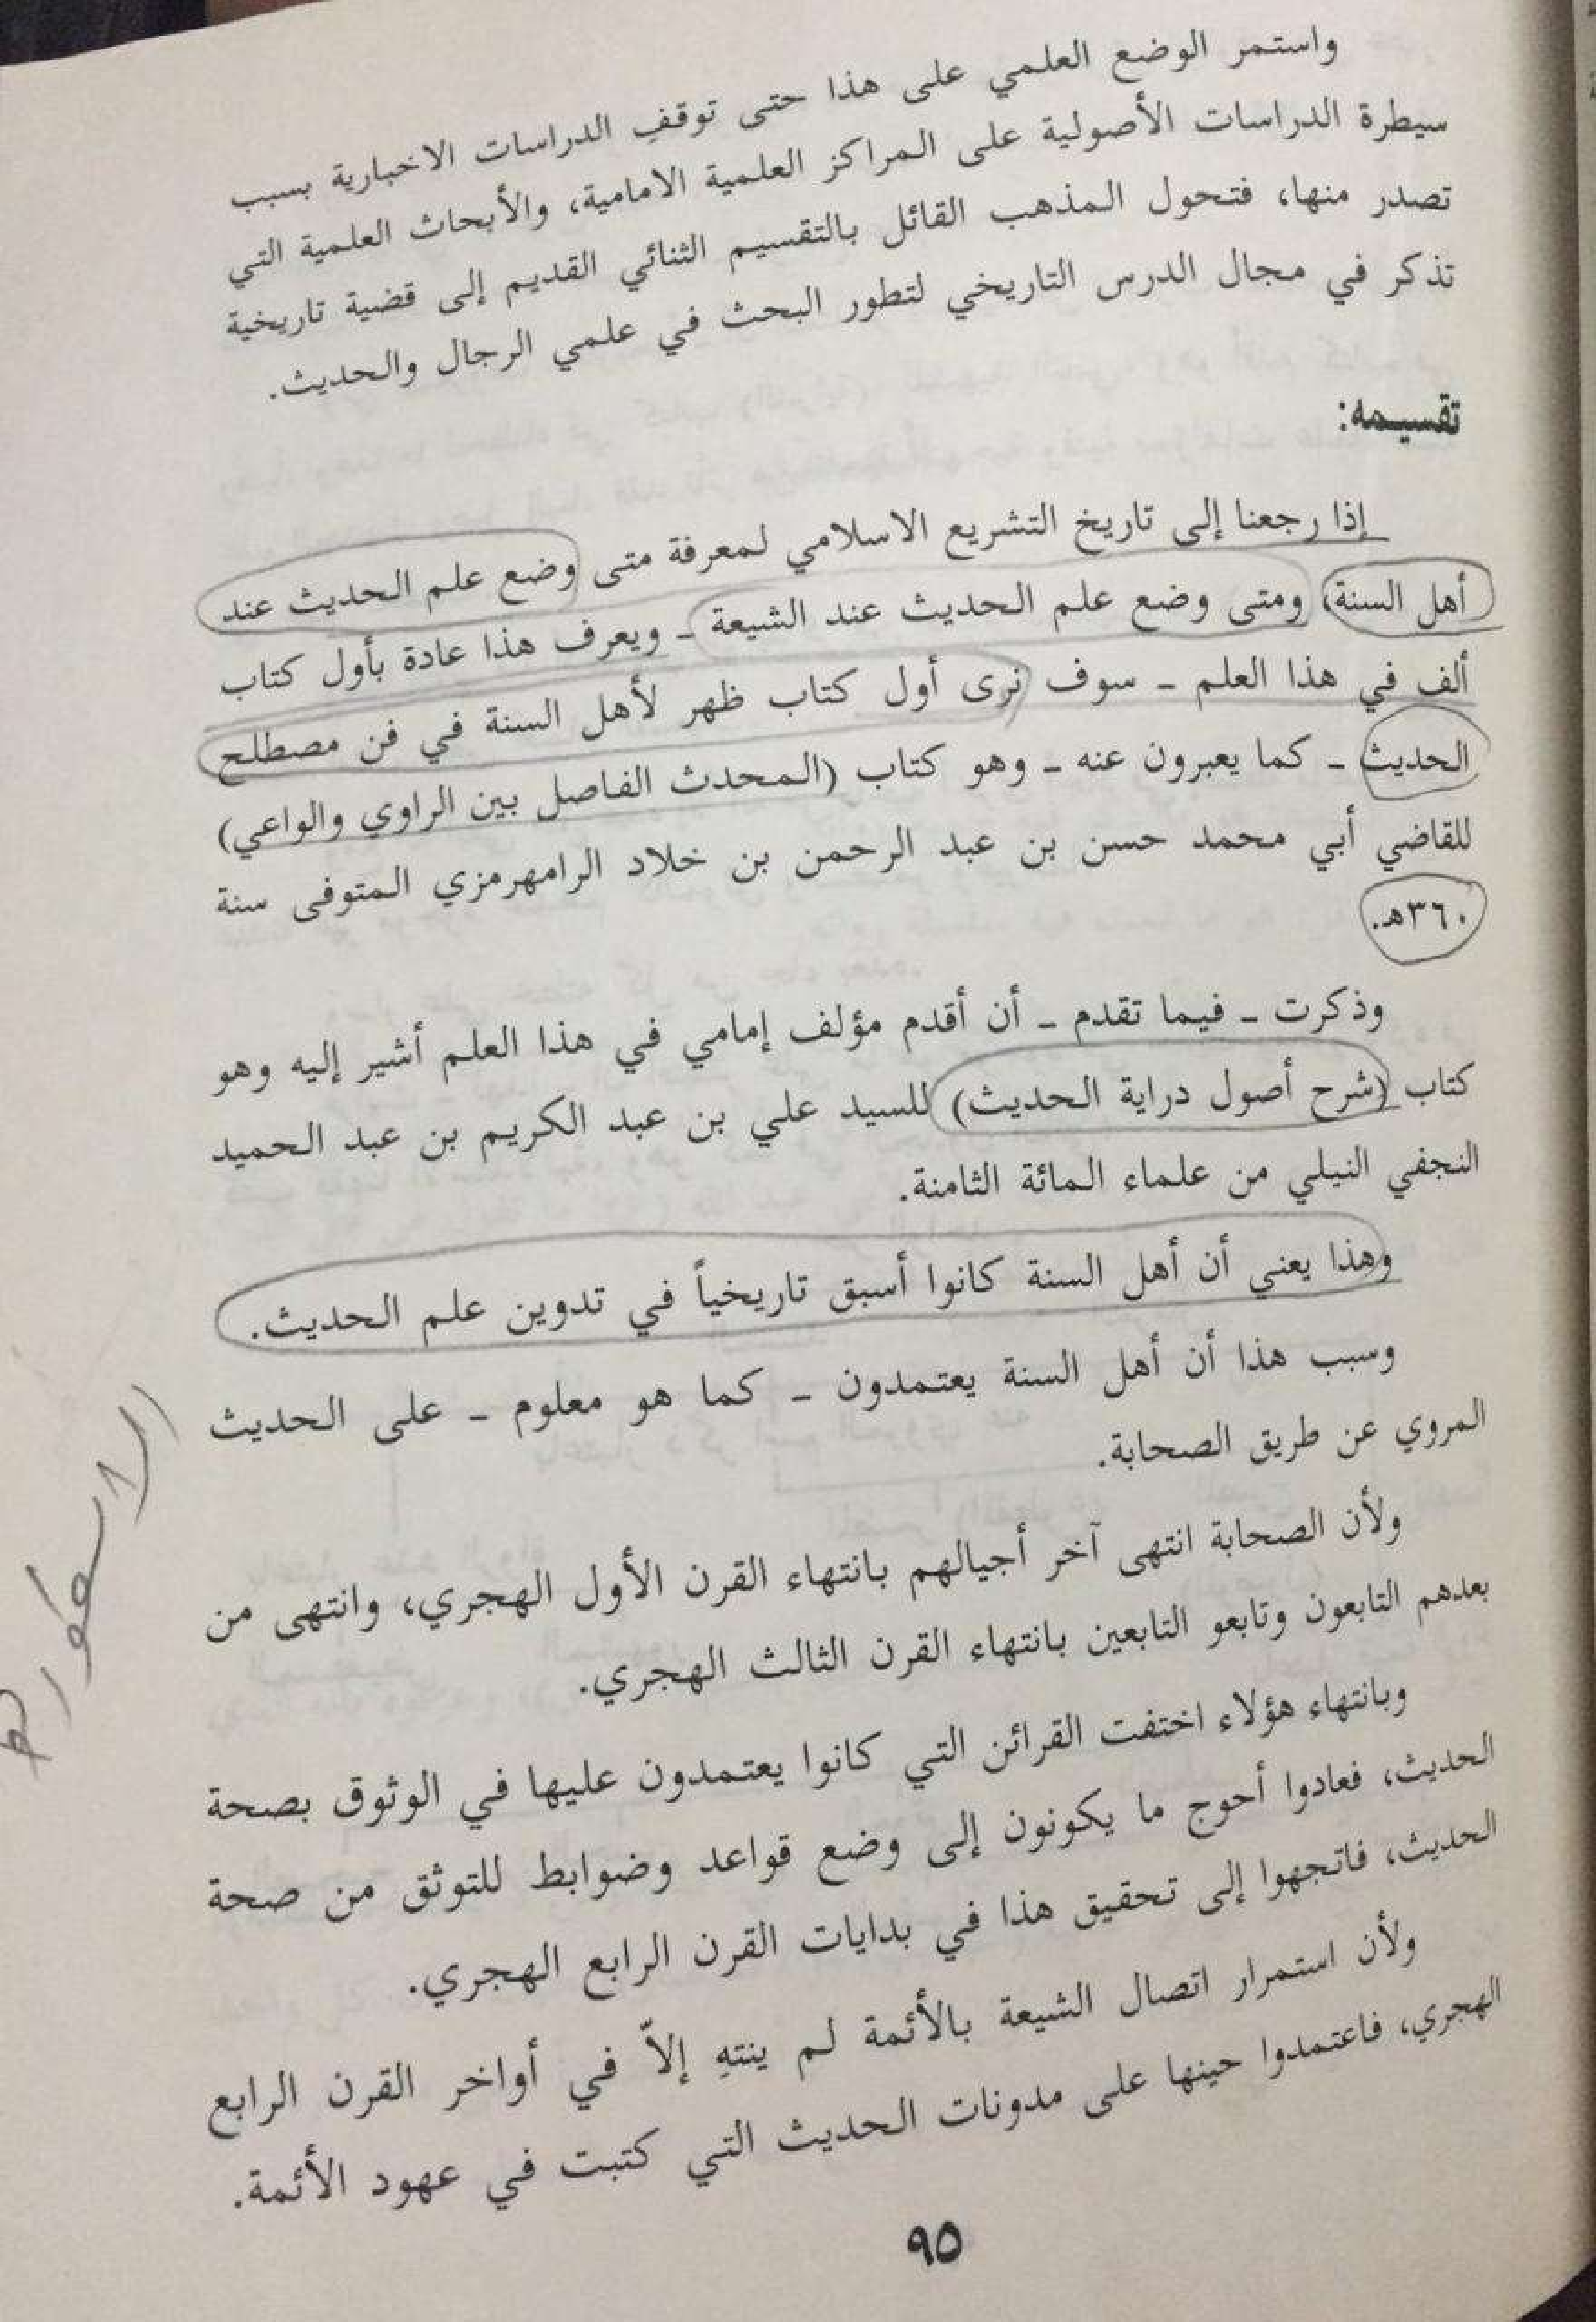 واستمر الوضع العلمي على هذا حتى توقف الدراسات الاخبارية بسبب
سيطرة الدراسات الأصولية على المراكز العلمية الامامية، والأبحاث العلمية التي
تصدر منها، فتحول المذهب القائل بالتقسيم الثنائي القديم إلى قضية تاريخية
تذكر في مجال الدرس التاريخي لتطور البحث في علمي الرجال والحديث.
تقسيمه:
إذا رجعنا إلى تاريخ التشريع الاسلامي لمعرفة متى وضع علم الحديث عند
أهل السنة، ومتى وضع علم الحديث عند الشيعة ـ ويعرف هذا عادة بأول كتاب
ألف في هذا العلم ـ سوف نرى أول كتاب ظهر لأهل السنة في فن مصطلح
الحديث ـ كما يعبرون عنه ـ وهو كتاب (المحدث الفاصل بين الراوي والواعي)
للقاضي أبي محمد حسن بن عبد الرحمن بن خلاد الرامهرمزي المتوفى سنة
٣٦٠هـ.
وذكرت ـ فيما تقدم ـ أن أقدم مؤلف إمامي في هذا العلم أشير إليه وهو
كتاب (شرح أصول دراية الحديث) للسيد علي بن عبد الكريم بن عبد الحميد
النجفي النيلي من علماء المائة الثامنة.
وهذا يعني أن أهل السنة كانوا أسبق تاريخياً في تدوين علم الحديث.
وسبب هذا أن أهل السنة يعتمدون ـ كما هو معلوم ـ على الحديث
المروي عن طريق الصحابة.
ولأن الصحابة انتهى آخر أجيالهم بانتهاء القرن الأول الهجري، وانتهى من
بعدهم التابعون وتابعو التابعين بانتهاء القرن الثالث الهجري.
وبانتهاء هؤلاء اختفت القرائن التي كانوا يعتمدون عليها في الوثوق بصحة
الحديث، فعادوا أحوج ما يكونون إلى وضع قواعد وضوابط للتوثق من صحة
الحديث، فاتجهوا إلى تحقيق هذا في بدايات القرن الرابع الهجري.
ولأن استمرار اتصال الشيعة بالأئمة لم ينتهِ إلاّ في أواخر القرن الرابع
الهجري، فاعتمدوا حينها على مدونات الحديث التي كتبت في عهود الأئمة.
٩٥